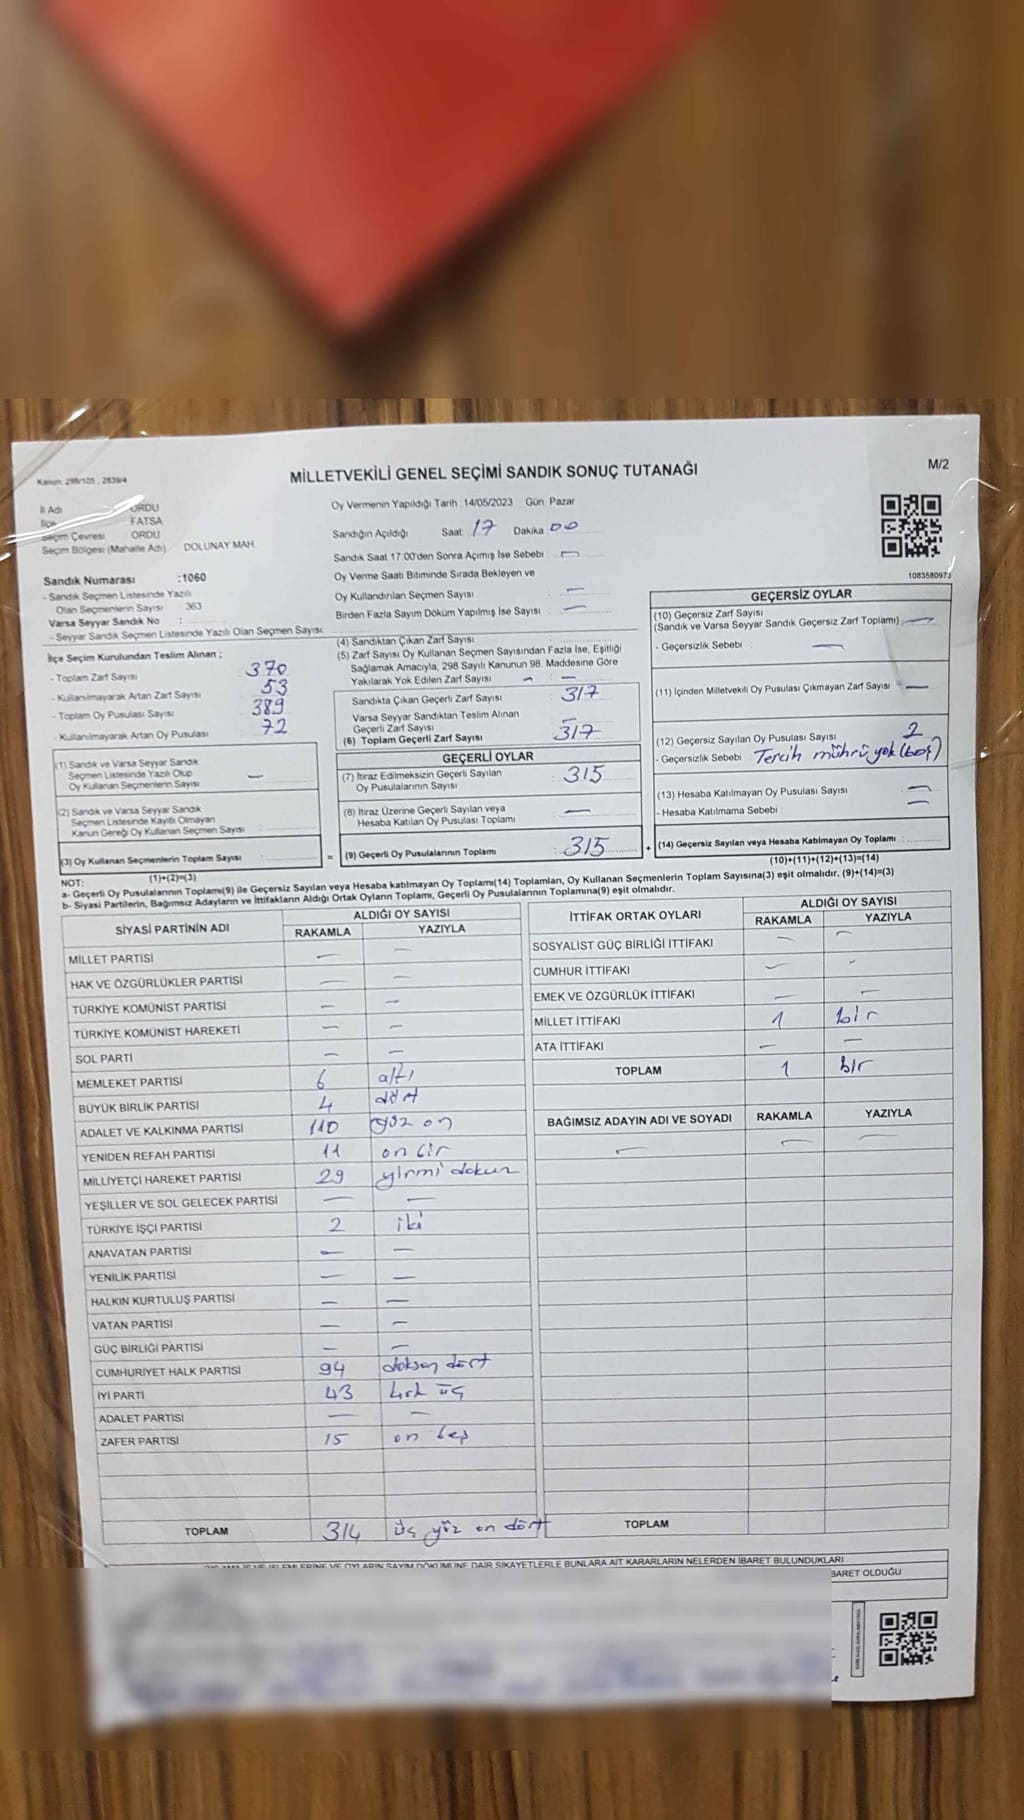 Kanun: 298/105 , 2839/4
MİLLETVEKİLİ GENEL SEÇİMİ SANDIK SONUÇ TUTANAĞI
M/2
İl Adı ORDU
İlçe FATSA
Seçim Çevresi ORDU
Seçim Bölgesi (Mahalle Adı) DOLUNAY MAH
Sandık Numarası :1060
- Sandık Seçmen Listesinde Yazılı
Olan Seçmenlerin Sayısı 363
Varsa Seyyar Sandık No :
- Seyyar Sandık Seçmen Listesinde Yazılı Olan Seçmen Sayısı
Oy Vermenin Yapıldığı Tarih :14/05/2023 Gün: Pazar
Sandığın Açıldığı Saat: 17 Dakika 00
Sandık Saat 17:00'den Sonra Açımış İse Sebebi : —
Oy Verme Saati Bitiminde Sırada Bekleyen ve
Oy Kullandırılan Seçmen Sayısı : —
Birden Fazla Sayım Döküm Yapılmış İse Sayısı : —
1083580973
İlçe Seçim Kurulundan Teslim Alınan ;
- Toplam Zarf Sayısı 370
- Kullanılmayarak Artan Zarf Sayısı 53
- Toplam Oy Pusulası Sayısı 389
- Kullanılmayarak Artan Oy Pusulası 72
(1) Sandık ve Varsa Seyyar Sandık
Seçmen Listesinde Yazılı Olup
Oy Kullanan Seçmenlerin Sayısı —
(2) Sandık ve Varsa Seyyar Sandık
Seçmen Listesinde Kayıtlı Olmayan
Kanun Gereği Oy Kullanan Seçmen Sayısı :
(3) Oy Kullanan Seçmenlerin Toplam Sayısı :
(1)+(2)=(3)
(4) Sandıktan Çıkan Zarf Sayısı :
(5) Zarf Sayısı Oy Kullanan Seçmen Sayısından Fazla İse, Eşitliği
Sağlamak Amacıyla, 298 Sayılı Kanunun 98. Maddesine Göre
Yakılarak Yok Edilen Zarf Sayısı : —
Sandıkta Çıkan Geçerli Zarf Sayısı : 317
Varsa Seyyar Sandıktan Teslim Alınan
Geçerli Zarf Sayısı : —
(6) Toplam Geçerli Zarf Sayısı : 317
GEÇERLİ OYLAR
(7) İtiraz Edilmeksizin Geçerli Sayılan
Oy Pusulalarının Sayısı : 315
(8) İtiraz Üzerine Geçerli Sayılan veya
Hesaba Katılan Oy Pusulası Toplamı : —
= (9) Geçerli Oy Pusulalarının Toplamı : 315 +
GEÇERSİZ OYLAR
(10) Geçersiz Zarf Sayısı
(Sandık ve Varsa Seyyar Sandık Geçersiz Zarf Toplamı) : —
- Geçersizlik Sebebi : —
(11) İçinden Milletvekili Oy Pusulası Çıkmayan Zarf Sayısı : —
(12) Geçersiz Sayılan Oy Pusulası Sayısı : 2
- Geçersizlik Sebebi Tercih mührü yok (boş)
(13) Hesaba Katılmayan Oy Pusulası Sayısı : —
- Hesaba Katılmama Sebebi : —
(14) Geçersiz Sayılan veya Hesaba Katılmayan Oy Toplamı :
(10)+(11)+(12)+(13)=(14)
NOT:
a- Geçerli Oy Pusulalarının Toplamı(9) ile Geçersiz Sayılan veya Hesaba katılmayan Oy Toplamı(14) Toplamları, Oy Kullanan Seçmenlerin Toplam Sayısına(3) eşit olmalıdır. (9)+(14)=(3)
b- Siyasi Partilerin, Bağımsız Adayların ve İttifakların Aldığı Ortak Oyların Toplamı, Geçerli Oy Pusulalarının Toplamına(9) eşit olmalıdır.
SİYASİ PARTİNİN ADI ALDIĞI OY SAYISI
RAKAMLA YAZIYLA
MİLLET PARTİSİ — —
HAK VE ÖZGÜRLÜKLER PARTİSİ — —
TÜRKİYE KOMÜNİST PARTİSİ — —
TÜRKİYE KOMÜNİST HAREKETİ — —
SOL PARTİ — —
MEMLEKET PARTİSİ 6 altı
BÜYÜK BİRLİK PARTİSİ 4 dört
ADALET VE KALKINMA PARTİSİ 110 yüz on
YENİDEN REFAH PARTİSİ 11 on bir
MİLLİYETÇİ HAREKET PARTİSİ 29 yirmi dokuz
YEŞİLLER VE SOL GELECEK PARTİSİ — —
TÜRKİYE İŞÇİ PARTİSİ 2 iki
ANAVATAN PARTİSİ — —
YENİLİK PARTİSİ — —
HALKIN KURTULUŞ PARTİSİ — —
VATAN PARTİSİ — —
GÜÇ BİRLİĞİ PARTİSİ — —
CUMHURİYET HALK PARTİSİ 94 doksan dört
İYİ PARTİ 43 kırk üç
ADALET PARTİSİ — —
ZAFER PARTİSİ 15 on beş
TOPLAM 314 üç yüz on dört
İTTİFAK ORTAK OYLARI ALDIĞI OY SAYISI
RAKAMLA YAZIYLA
SOSYALİST GÜÇ BİRLİĞİ İTTİFAKI — —
CUMHUR İTTİFAKI — —
EMEK VE ÖZGÜRLÜK İTTİFAKI — —
MİLLET İTTİFAKI 1 bir
ATA İTTİFAKI — —
TOPLAM 1 bir
BAĞIMSIZ ADAYIN ADI VE SOYADI RAKAMLA YAZIYLA
— — —
TOPLAM
OYLARIN SAYIM DÖKÜMÜNE DAİR ŞİKAYETLERLE BUNLARA AİT KARARLARIN NELERDEN İBARET BULUNDUKLARI
BARET OLDUĞU